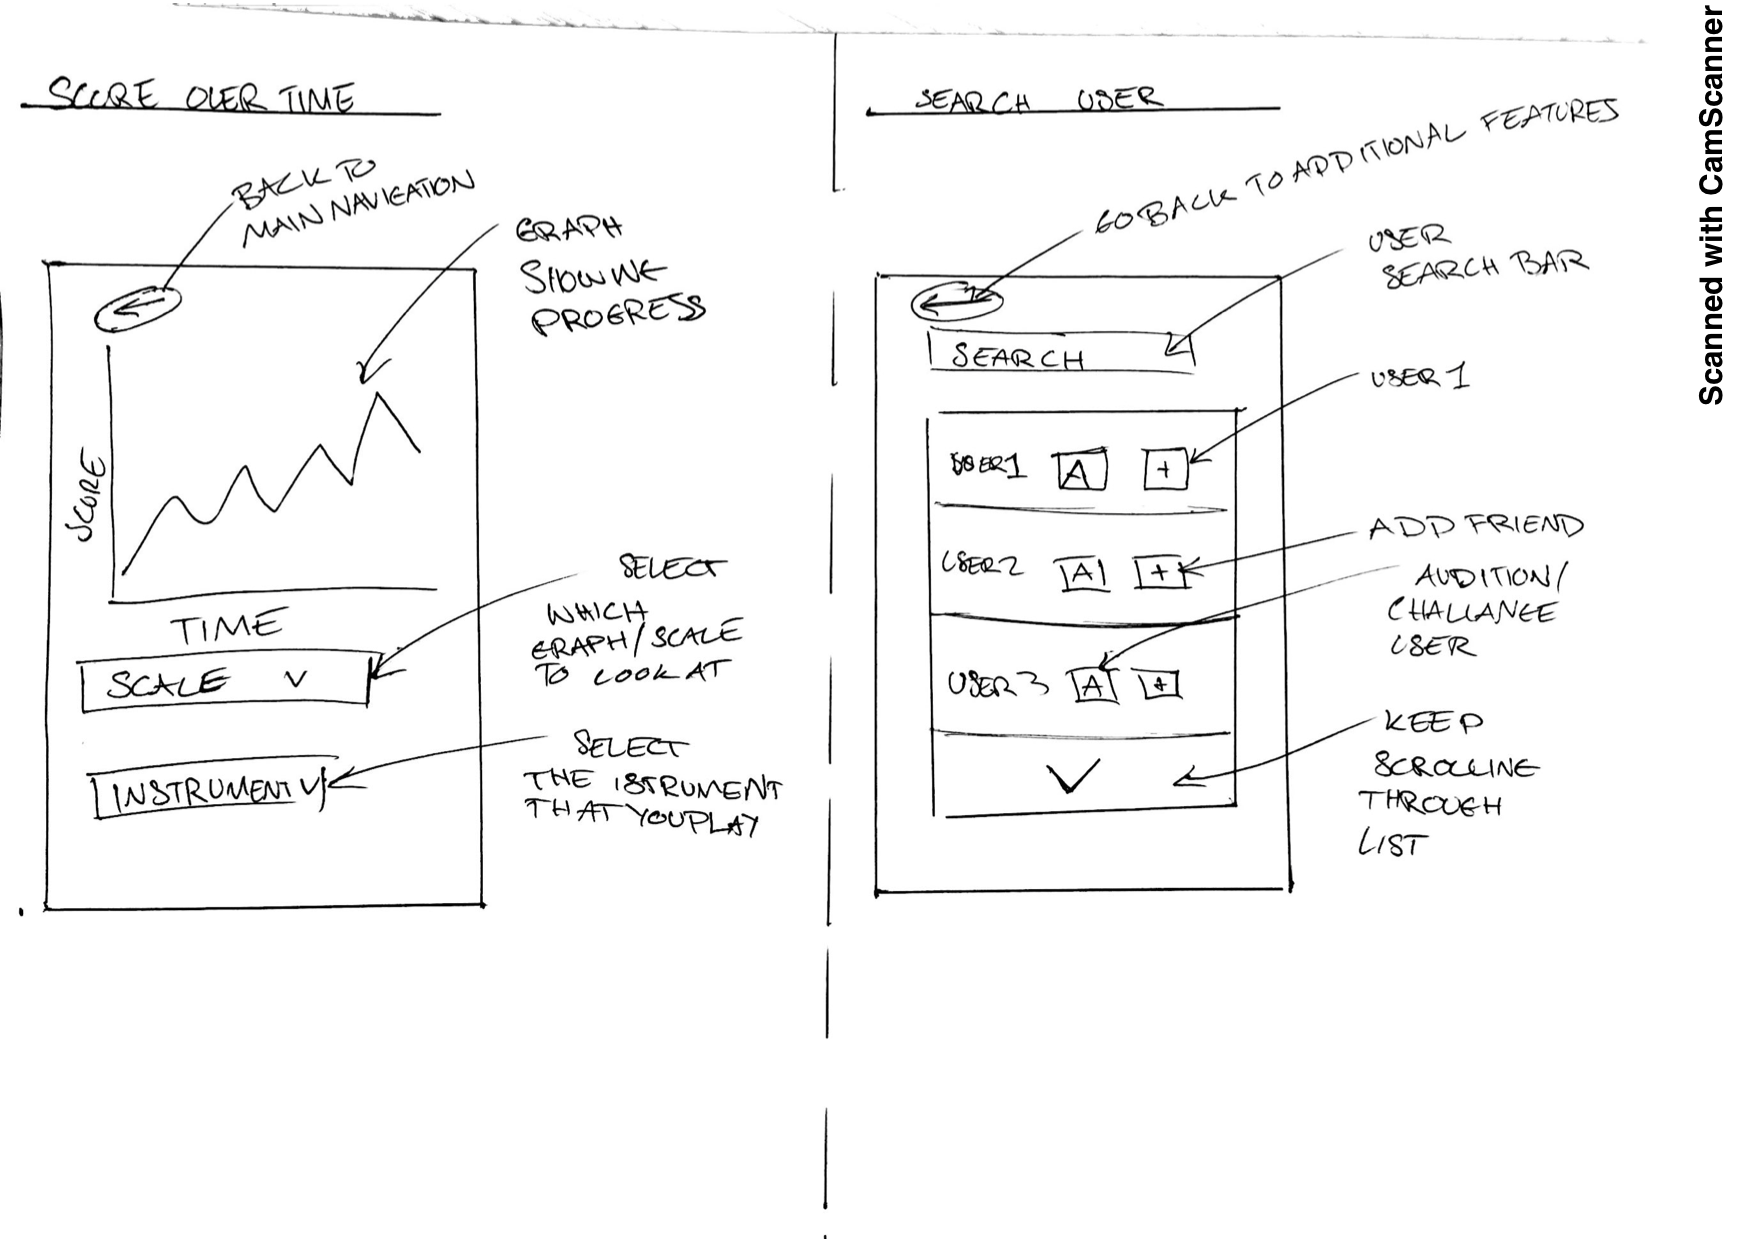 SCORE OVER TIME
BACK TO
MAIN NAVIGATION
GRAPH
SHOWING
PROGRESS
SCORE
TIME
SELECT
WHICH
GRAPH/SCALE
TO LOOK AT
SCALE V
SELECT
THE ISTRUMENT
THAT YOU PLAY
INSTRUMENT V
SEARCH USER
GO BACK TO ADDITIONAL FEATURES
USER
SEARCH BAR
SEARCH
USER 1
USER1 A +
ADD FRIEND
USER2 A +
AUDITION/
CHALLANGE
USER
USER3 A +
KEEP
SCROLLING
THROUGH
LIST
Scanned with CamScanner